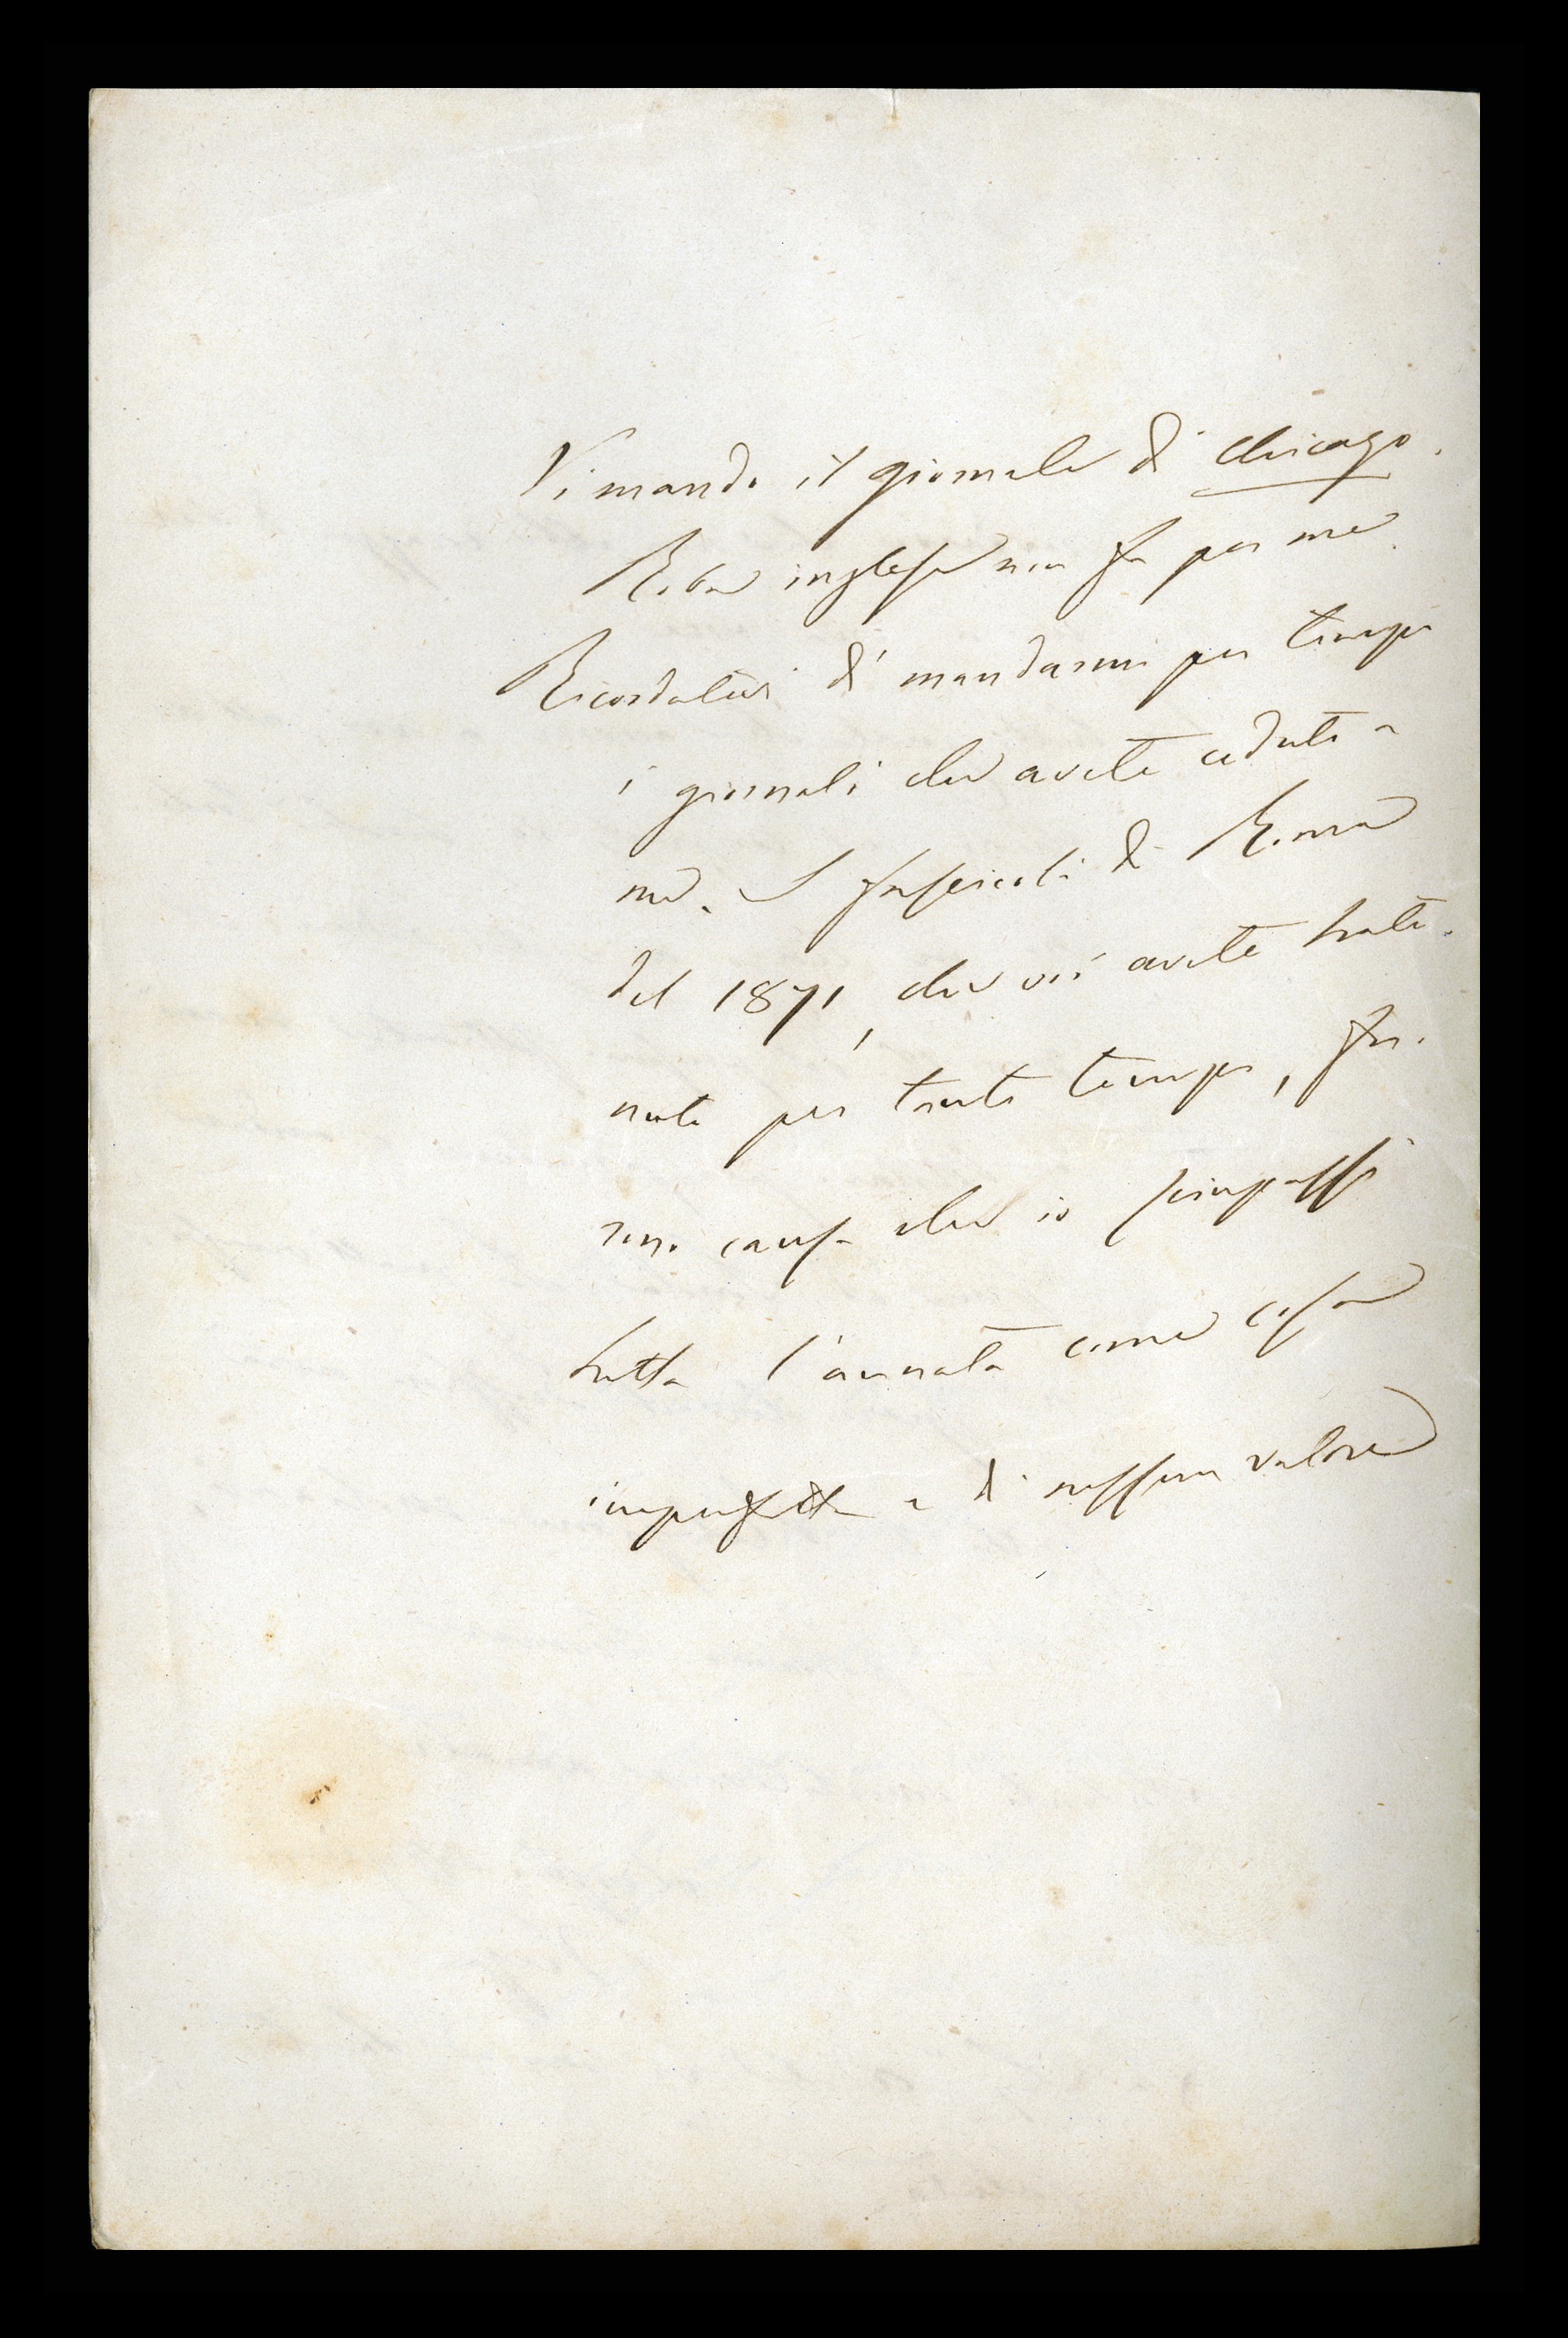 Vi mando il giornale di Chicago.
Roba inglese non fa per me.
Ricordatevi di mandarmi per tempo
i giornali che avete ceduti a
me. I fascicoli di Roma
del 1871, che voi avete tratte-
nuti per tanto tempo, fu-
rono causa che io sciupassi
tutta l'annata come cosa
imperfetta e di nessun valore